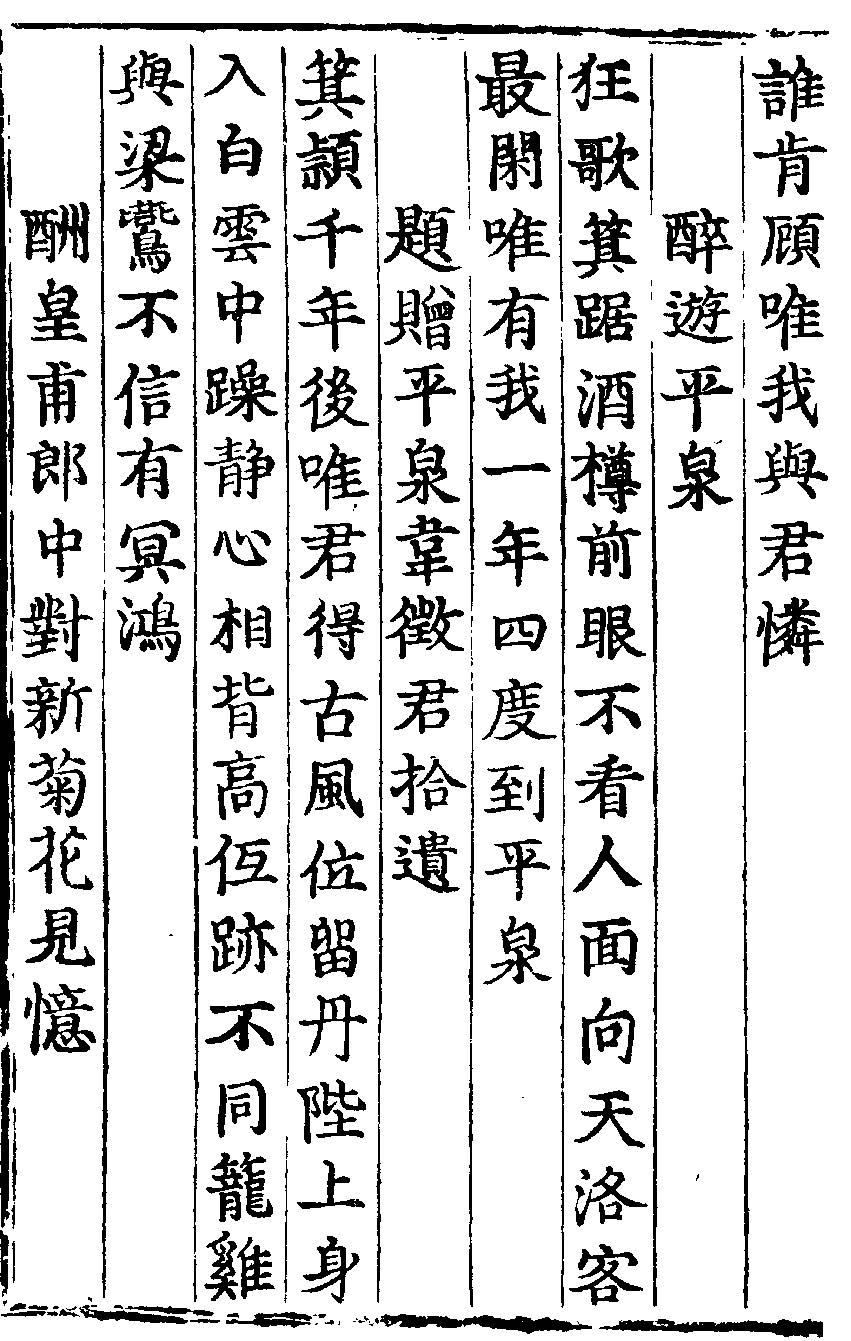 誰肯顧唯我與君憐
醉遊平泉
狂歌箕踞酒樽前眼不看人面向天洛客
最閑唯有我一年四度到平泉
題贈平泉韋徵君拾遺
箕潁千年後唯君得古風位留丹陛上身
入白雲中躁静心相背高低跡不同籠雞
與梁鷰不信有冥鴻
酬皇甫郎中對新菊花見憶